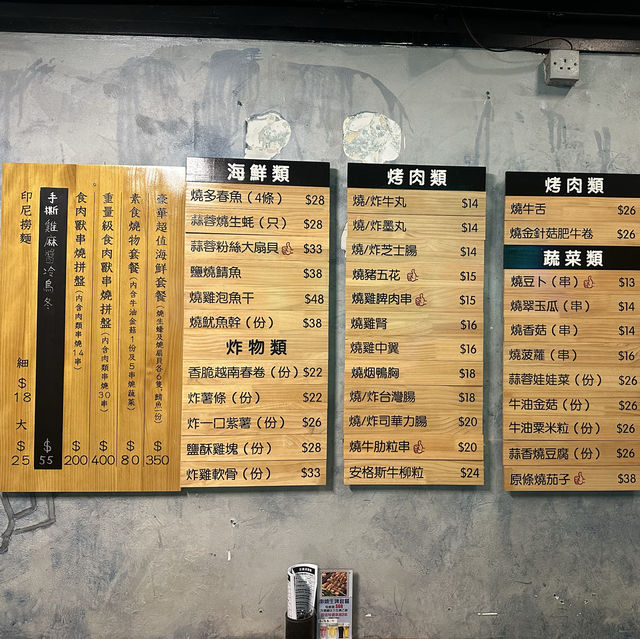 豪華超值海鮮套餐(燒生蠔及燒扇貝各6隻,鯖魚1份) $350
素食燒物套餐(內含牛油金菇1份及5串燒蔬菜) $80
重量級食肉獸串燒拼盤(內含肉類串燒30串) $400
食肉獸串燒拼盤(內含肉類串燒14串) $200
手撕雞麻醬冷烏冬 $55
印尼撈麵 細$18 大$25
海鮮類
燒多春魚(4條) $28
蒜蓉燒生蚝(只) $28
蒜蓉粉絲大扇貝 $33
鹽燒鯖魚 $38
燒雞泡魚干 $48
燒魷魚幹(份) $38
炸物類
香脆越南春卷(份) $22
炸薯條(份) $22
炸一口紫薯(份) $26
鹽酥雞塊(份) $28
炸雞軟骨(份) $33
烤肉類
燒/炸牛丸 $14
燒/炸墨丸 $14
燒/炸芝士腸 $14
燒豬五花 $15
燒雞脾肉串 $15
燒雞腎 $16
燒雞中翼 $16
燒烟鴨胸 $18
燒/炸台灣腸 $18
燒/炸司華力腸 $20
燒牛肋粒串 $20
安格斯牛柳粒 $24
烤肉類
燒牛舌 $26
燒金針菇肥牛卷 $26
蔬菜類
燒豆卜(串) $13
燒翠玉瓜(串) $14
燒香菇(串) $14
燒菠蘿(串) $16
蒜蓉娃娃菜(份) $26
牛油金菇(份) $26
牛油粟米粒(份) $26
蒜香燒豆腐(份) $26
原條燒茄子 $38